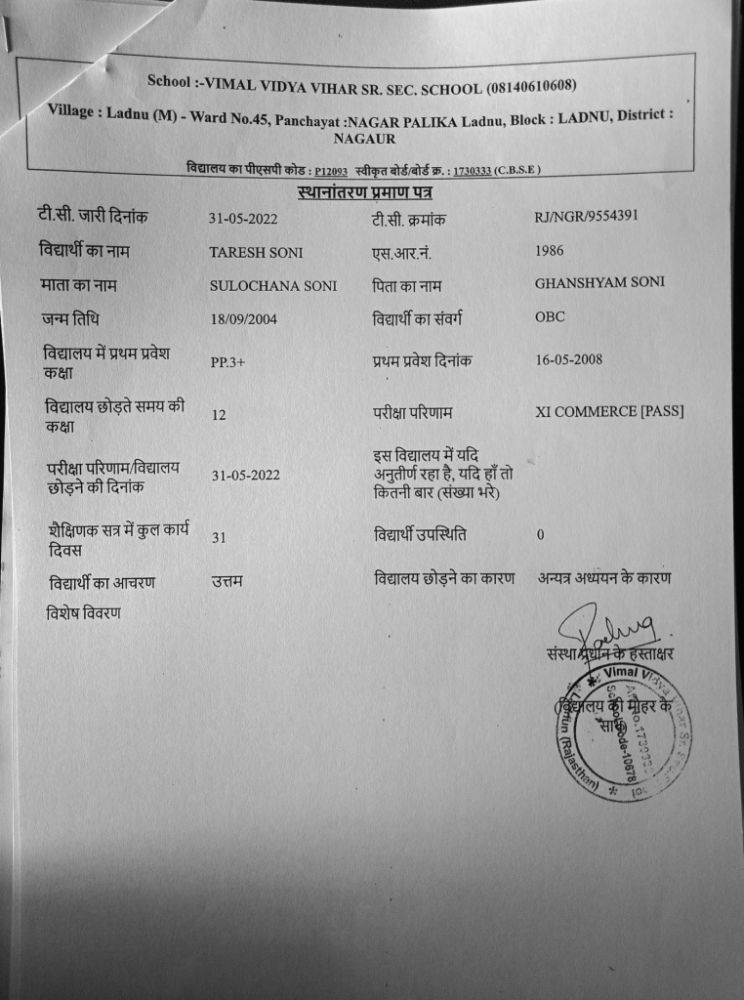 School :-VIMAL VIDYA VIHAR SR. SEC. SCHOOL (08140610608)
Village : Ladnu (M) - Ward No.45, Panchayat :NAGAR PALIKA Ladnu, Block : LADNU, District :
NAGAUR
विद्यालय का पीएसपी कोड : P12093 स्वीकृत बोर्ड/बोर्ड क्र. : 1730333 (C.B.S.E )
स्थानांतरण प्रमाण पत्र
टी.सी. जारी दिनांक 31-05-2022 टी.सी. क्रमांक RJ/NGR/9554391
विद्यार्थी का नाम TARESH SONI एस.आर.नं. 1986
माता का नाम SULOCHANA SONI पिता का नाम GHANSHYAM SONI
जन्म तिथि 18/09/2004 विद्यार्थी का संवर्ग OBC
विद्यालय में प्रथम प्रवेश
कक्षा PP.3+ प्रथम प्रवेश दिनांक 16-05-2008
विद्यालय छोड़ते समय की
कक्षा 12 परीक्षा परिणाम XI COMMERCE [PASS]
परीक्षा परिणाम/विद्यालय
छोड़ने की दिनांक 31-05-2022
इस विद्यालय में यदि
अनुतीर्ण रहा है, यदि हाँ तो
कितनी बार (संख्या भरे)
शैक्षिणक सत्र में कुल कार्य
दिवस 31 विद्यार्थी उपस्थिति 0
विद्यार्थी का आचरण उत्तम विद्यालय छोड़ने का कारण अन्यत्र अध्ययन के कारण
विशेष विवरण
संस्था प्रधान के हस्ताक्षर
(विद्यालय की मोहर के
साथ)
Vimal Vidya Vihar Sr.
School Code-10678
(Rajasthan)